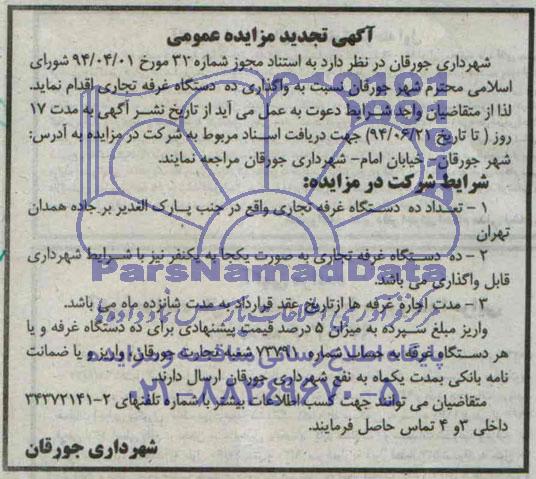 آگهی تجدید مزایده عمومی
شهرداری جورقان در نظر دارد به استناد مجوز شماره ۳۲ مورخ ۹۴/۰۴/۰۱ شورای
اسلامی محترم شهر جورقان نسبت به واگذاری ده دستگاه غرفه تجاری اقدام نماید.
لذا از متقاضیان واجد شرایط دعوت به عمل می آید از تاریخ نشر آگهی به مدت ۱۷
روز ( تا تاریخ ۹۴/۰۶/۲۱) جهت دریافت اسناد مربوط به شرکت در مزایده به آدرس:
شهر جورقان - خیابان امام– شهرداری جورقان مراجعه نمایند.
شرایط شرکت در مزایده:
۱ – تعداد ده دستگاه غرفه تجاری واقع در جنب پارک الغدیر بر جاده همدان
تهران
۲ – ده دستگاه غرفه تجاری به صورت یکجا به یکنفر نیز با شرایط شهرداری
قابل واگذاری می باشد.
۳ – مدت اجاره غرفه ها ازتاریخ عقد قرارداد به مدت شانزده ماه می باشد.
واریز مبلغ سپرده به میزان ۵ درصد قیمت پیشنهادی برای ده دستگاه غرفه و یا
هر دستگاه غرفه به حساب شماره ۷۳۷۹۱۰ شعبه تجارت جورقان، واریز و یا ضمانت
نامه بانکی بمدت یکماه به نفع شهرداری جورقان ارسال دارند.
متقاضیان می توانند جهت کسب اطلاعات بیشتر با شماره تلفنهای ۲-۳۴۳۷۲۱۴۱
داخلی ۳و ۴ تماس حاصل فرمایند.
شهرداری جورقان
ParsNamadData
مرکز فرآوری اطلاعات پارس نماد داده ها
پایگاه اطلاع رسانی مناقصه و مزایده
۰۲۱-۸۸۳۴۹۶۷۰-۵